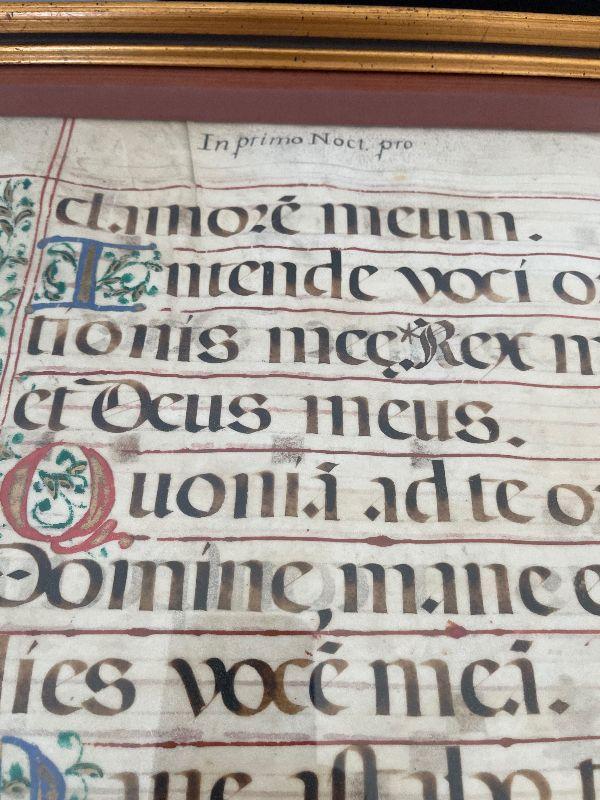 In primo Noct. pro
clamorē meum.
Intende voci o
tionis meę * Rex m
et Deus meus.
Quoniā ad te o
Domine, mane e
dies vocē meā.
Mane astabo t